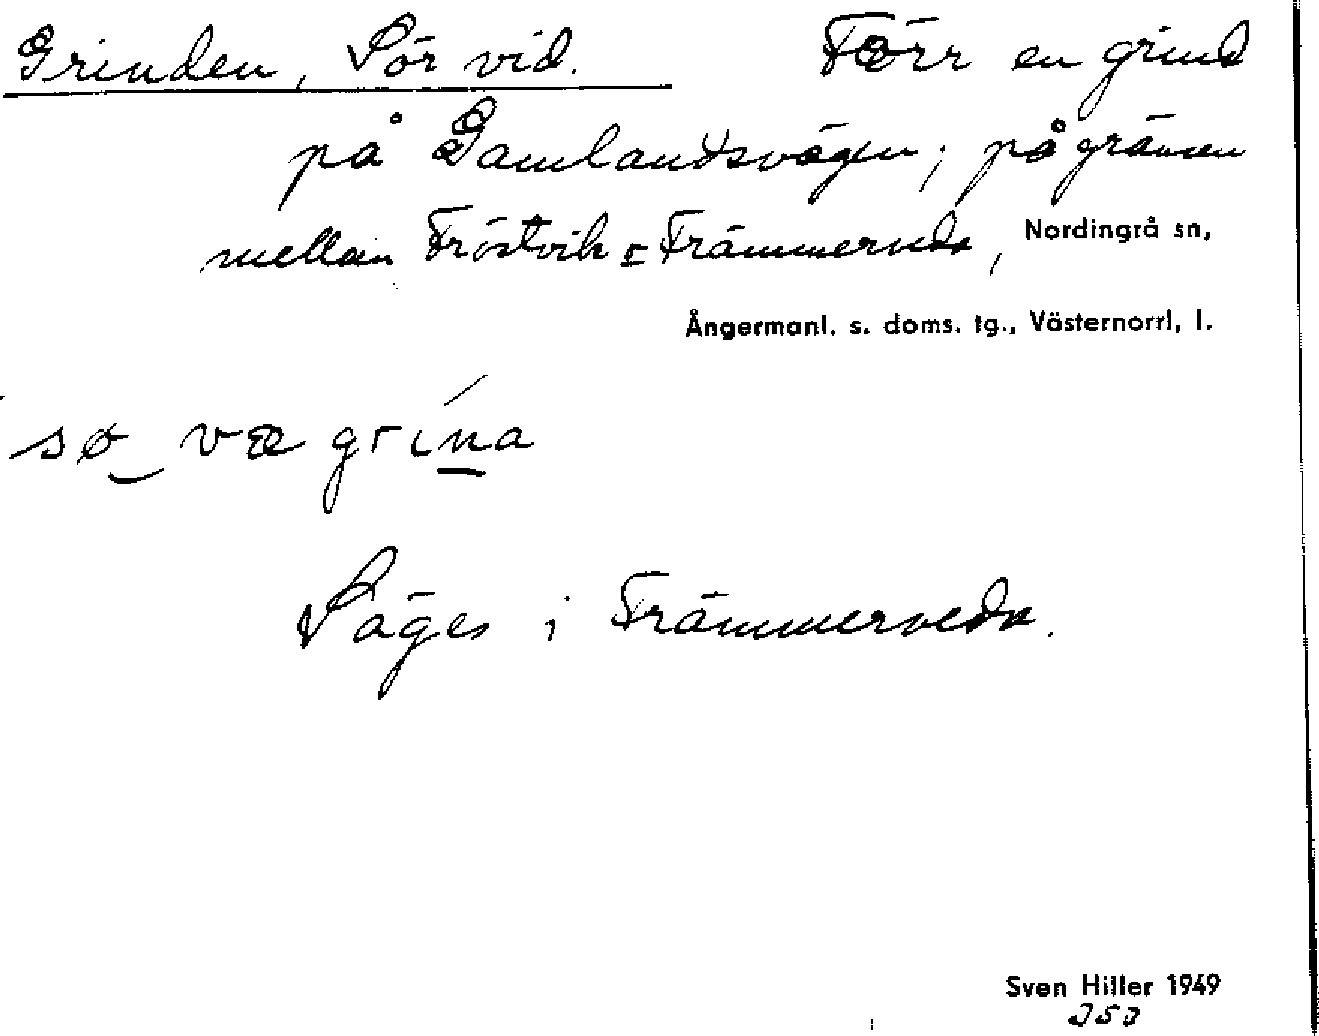 Grinden, Sör vid. Förr en grind
på Gamlandsvägen; på gränsen
mellan Fröstvik o Främmerveda, Nordingrå sn,
Ångermanl. s. doms. tg., Västernorrl, l.
sø væ grína
Säges i Främmerveda.
Sven Hiller 1949